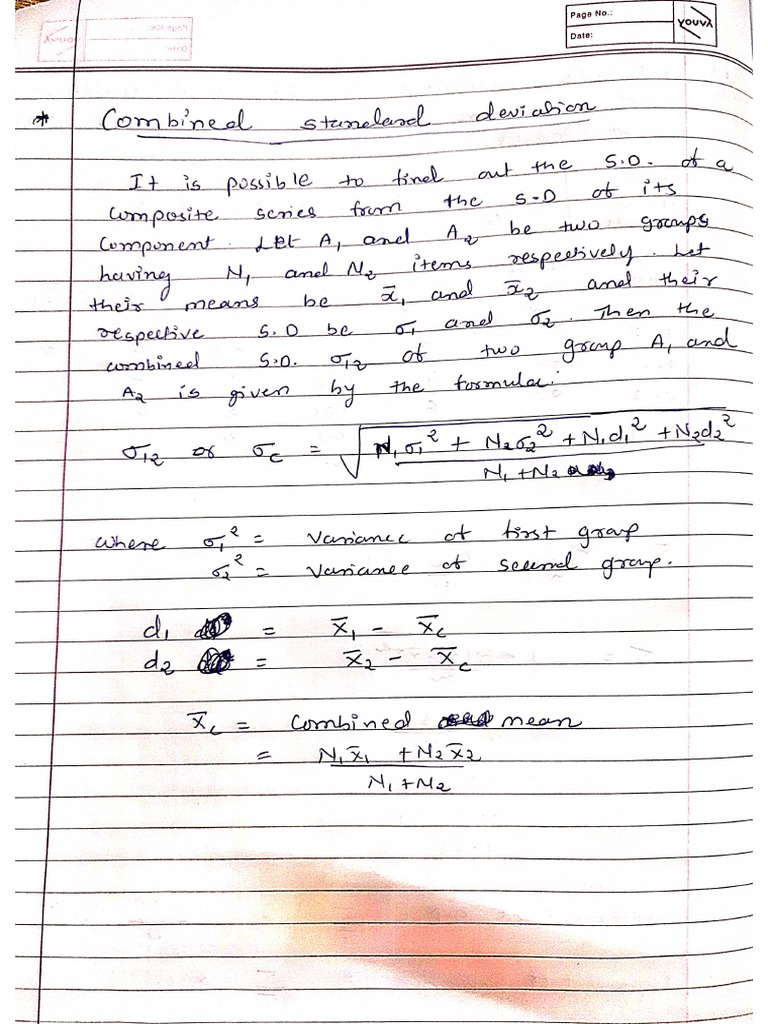 Page No.:
Date:
YOUVA
* Combined standard deviation
It is possible to find out the S.D. of a
composite series from the S.D of its
component. Let A₁ and A₂ be two groups
having N₁ and N₂ items respectively. Let
their means be x̄₁ and x̄₂ and their
respective S.D be σ₁ and σ₂. Then the
combined S.D. σ₁₂ of two group A₁ and
A₂ is given by the formula:
σ₁₂ or σc = √(N₁σ₁² + N₂σ₂² + N₁d₁² + N₂d₂²
N₁ + N₂)
where σ₁² = Variance of first group
σ₂² = Variance of second group.
d₁ = x̄₁ - x̄c
d₂ = x̄₂ - x̄c
x̄c = Combined mean
= N₁x̄₁ + N₂x̄₂
N₁ + N₂